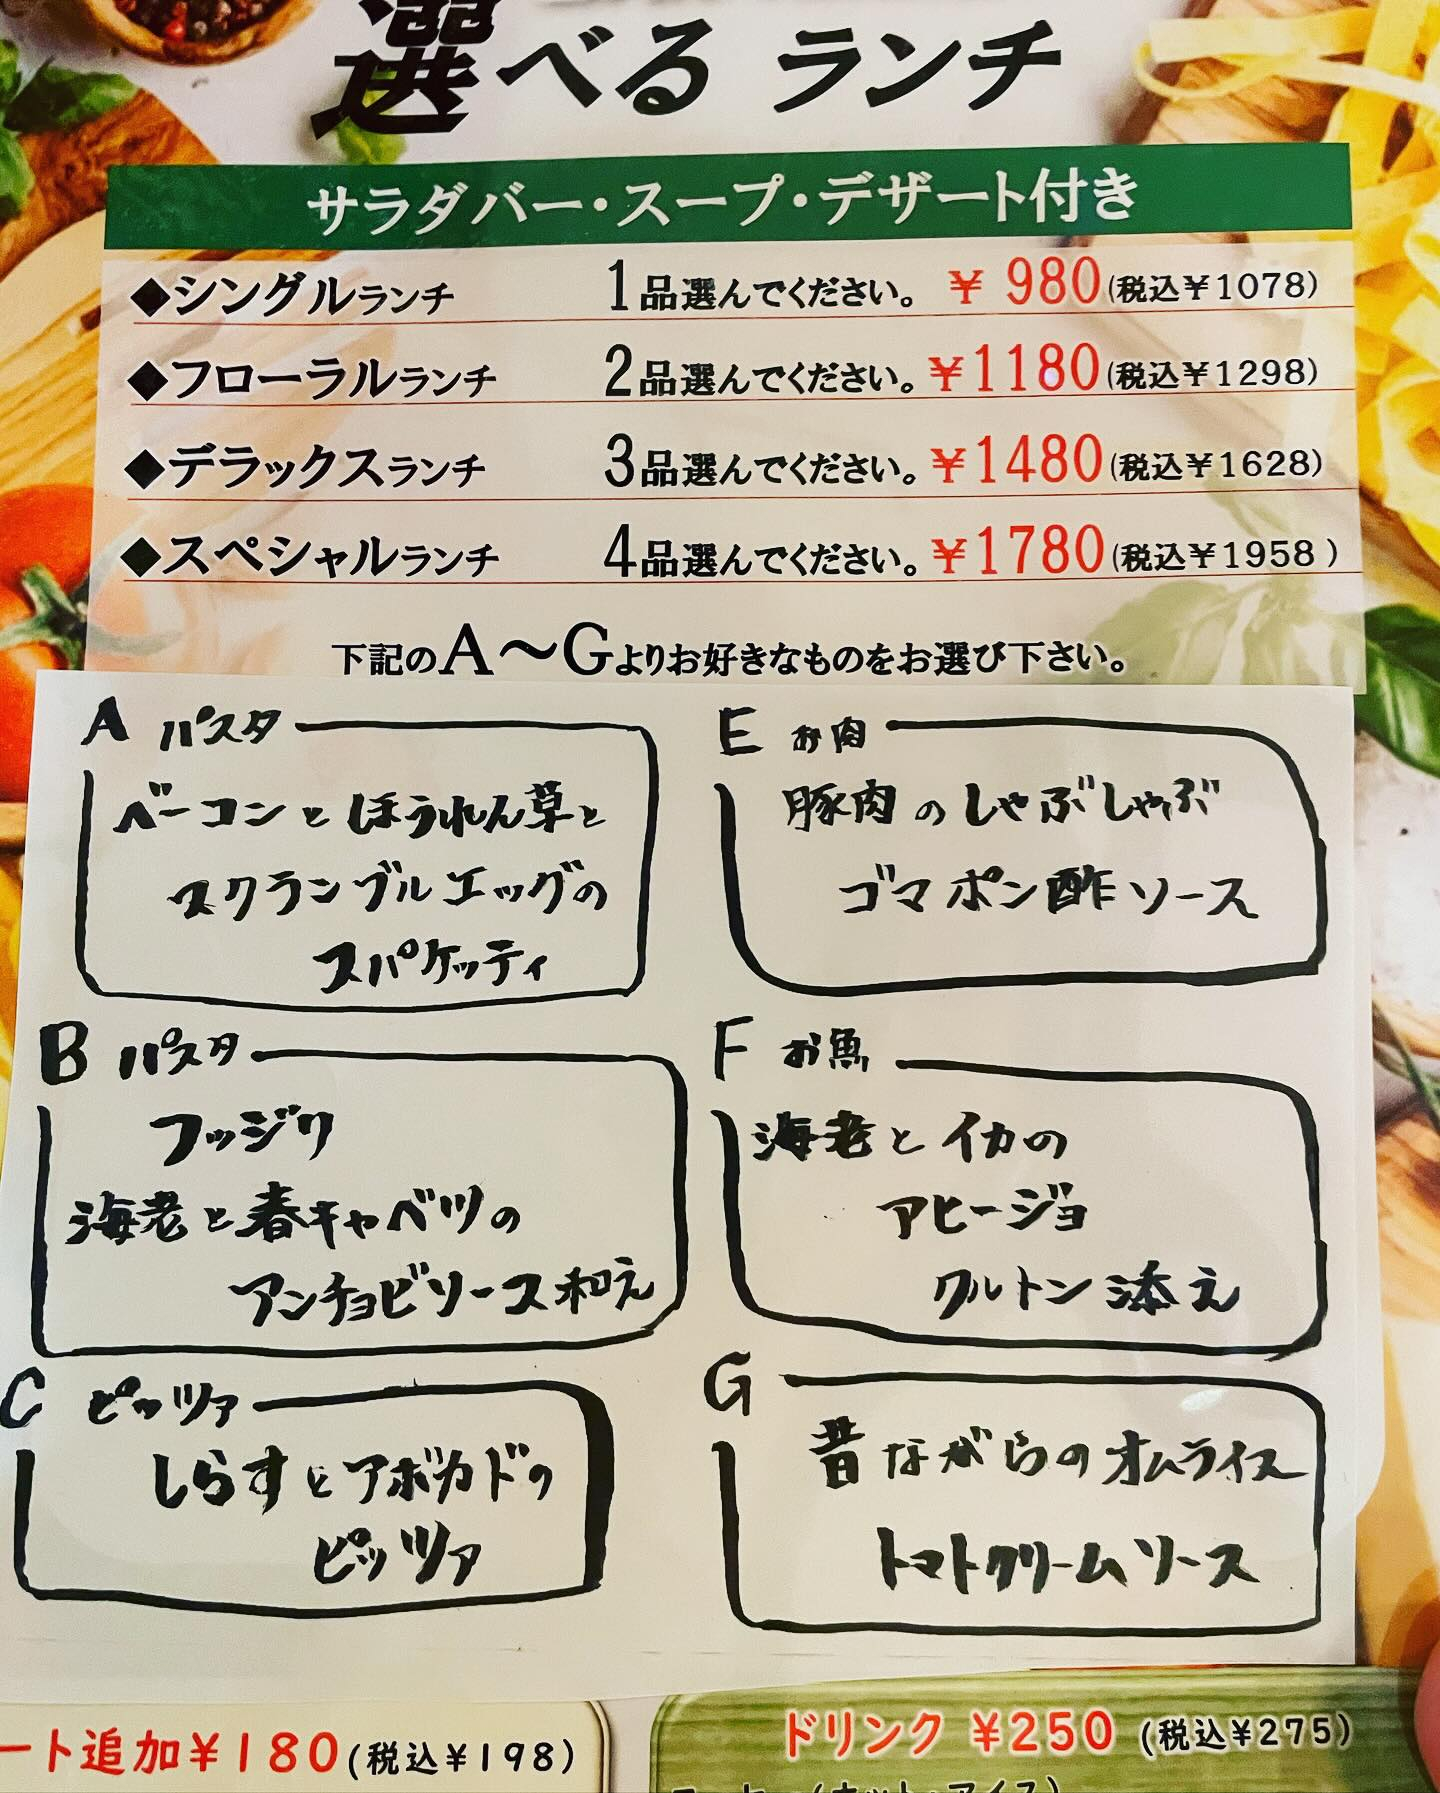 選べる ランチ
サラダバー・スープ・デザート付き
◆シングルランチ 1品選んでください。 ¥980(税込¥1078)
◆フローラルランチ 2品選んでください。¥1180(税込¥1298)
◆デラックスランチ 3品選んでください。¥1480(税込¥1628)
◆スペシャルランチ 4品選んでください。¥1780(税込¥1958)
下記のA〜Gよりお好きなものをお選び下さい。
A パスタ
ベーコンとほうれん草と
スクランブルエッグの
スパゲッティ
B パスタ
フッジリ
海老と春キャベツの
アンチョビソース和え
C ピッツァ
しらすとアボカドの
ピッツァ
E お肉
豚肉のしゃぶしゃぶ
ゴマポン酢ソース
F お魚
海老とイカの
アヒージョ
クルトン添え
G
昔ながらのオムライス
トマトクリームソース
ート追加¥180(税込¥198)
ドリンク ¥250 (税込¥275)